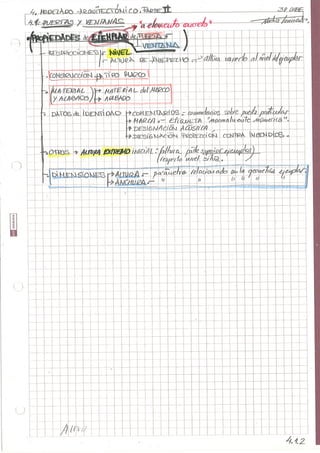 4. MODELADO ARQUITECTÓNICO. PARTE II
4.1. PUERTAS Y VENTANAS
"a elemento suelto"
PROPIEDADES de EJEMPLAR de PUERTA
VENTANA
RESTRICCIONES NIVEL
ALTURA DE ANTEPECHO altura al nivel del ejemplar
CONSTRUCCIÓN → TIPO MARCO
MATERIAL → MATERIAL del MARCO
Y ACABADOS → ACABADO
DATOS de IDENTIDAD → COMENTARIOS: comentarios sobre
→ MARCA ETIQUETA "normalmente numérica".
→ DESIGNACIÓN ACÚSTICA
→ DESIGNACIÓN PROTECCIÓN CONTRA INCENDIOS.
OTROS → ALTURA EXTREMO INICIAL: (altura parte superior ejemplar)
(respecto nivel sitúa.
DIMENSIONES → ALTURA parámetro relacionado con la geometría ejemplar.
→ ANCHURA " " " " "
4.1.2